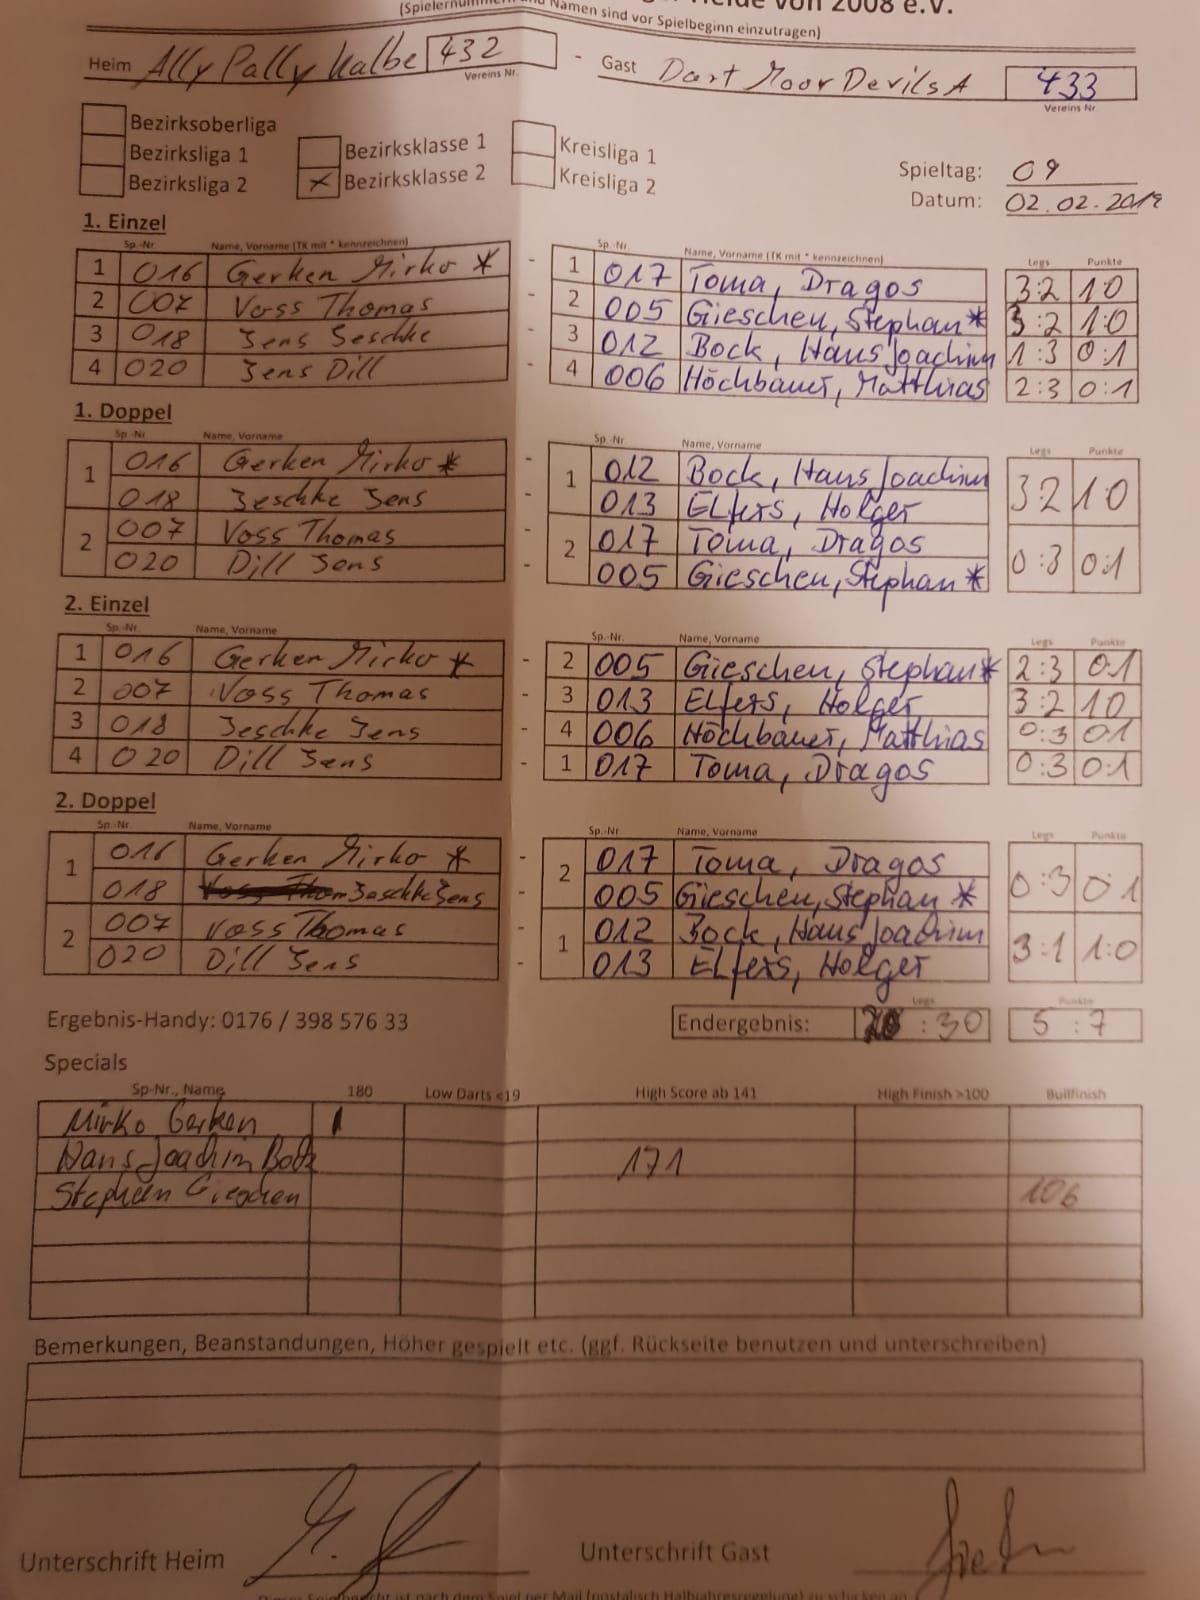 Heide von 2008 e.V.
(Spielernummern und Namen sind vor Spielbeginn einzutragen)
Heim Ally Pally Kalbe 432 - Gast Dart Moor Devils A 433
Vereins Nr. Vereins Nr
Bezirksoberliga
Bezirksliga 1 Bezirksklasse 1 Kreisliga 1
Bezirksliga 2 X Bezirksklasse 2 Kreisliga 2
Spieltag: 09
Datum: 02.02.2019
1. Einzel
Sp.-Nr. Name, Vorname (TK mit * kennzeichnen) Sp.-Nr. Name, Vorname (TK mit * kennzeichnen) Legs Punkte
1 016 Gerken Mirko * - 1 017 Toma, Dragos 3:2 1 0
2 007 Voss Thomas - 2 005 Gieschen, Stephan * 3:2 1:0
3 018 Jens Jeschke - 3 012 Bock, Hans Joachim 1:3 0:1
4 020 Jens Dill - 4 006 Höchbauer, Matthias 2:3 0:1
1. Doppel
Sp.-Nr Name, Vorname Sp.-Nr. Name, Vorname Legs Punkte
1 016 Gerken Mirko * - 1 012 Bock, Hans Joachim 3 2 1 0
018 Jeschke Jens - 013 Elfers, Holger
2 007 Voss Thomas - 2 017 Toma, Dragos 0:3 0:1
020 Dill Jens - 005 Gieschen, Stephan *
2. Einzel
Sp.-Nr. Name, Vorname Sp.-Nr. Name, Vorname Legs Punkte
1 016 Gerken Mirko * - 2 005 Gieschen, Stephan * 2:3 0 1
2 007 Voss Thomas - 3 013 Elfers, Holger 3:2 1 0
3 018 Jeschke Jens - 4 006 Höchbauer, Matthias 0:3 0 1
4 020 Dill Jens - 1 017 Toma, Dragos 0:3 0:1
2. Doppel
Sp.-Nr Name, Vorname Sp.-Nr Name, Vorname Legs Punkte
1 016 Gerken Mirko * - 2 017 Toma, Dragos 0:3 0 1
018 Jeschke Jens - 005 Gieschen, Stephan *
2 007 Voss Thomas - 1 012 Bock, Hans Joachim 3:1 1:0
020 Dill Jens - 013 Elfers, Holger
Ergebnis-Handy: 0176 / 398 576 33
Legs Punkte
Endergebnis: : 30 5 : 7
Specials
Sp-Nr., Name 180 Low Darts <19 High Score ab 141 High Finish >100 Bullfinish
Mirko Gerken 1
Hans Joachim Bock 171
Stephan Gieschen 106
Bemerkungen, Beanstandungen, Höher gespielt etc. (ggf. Rückseite benutzen und unterschreiben)
Unterschrift Heim Unterschrift Gast